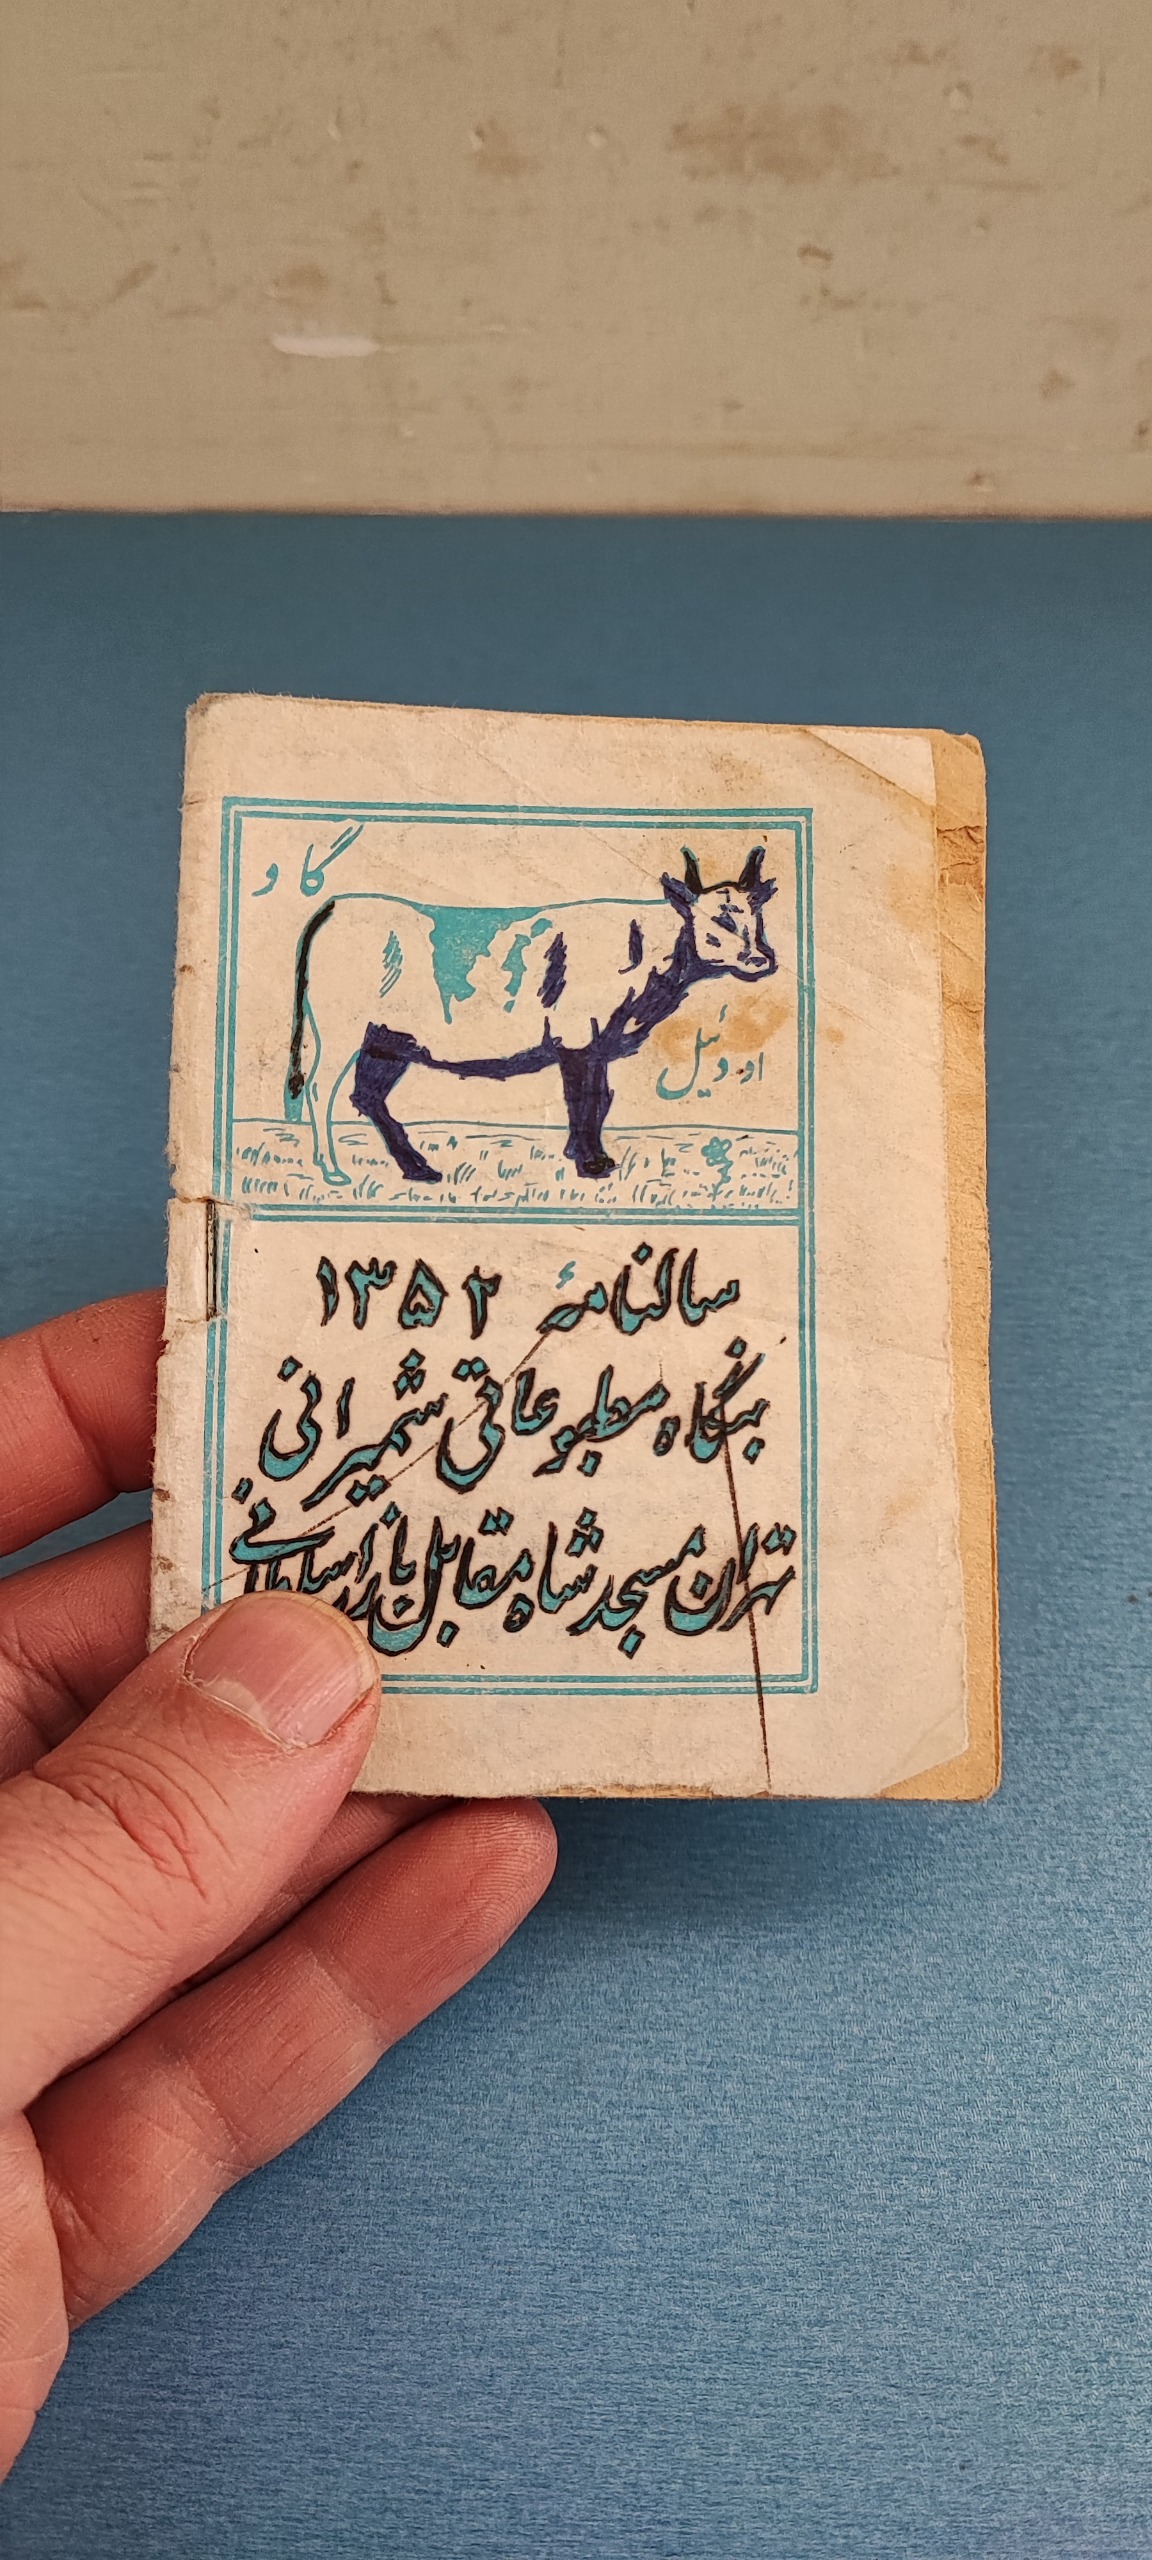 گاو
اودئیل
سالنامهٔ ۱۳۵۲
بنگاه مطبوعاتی شمیرانی
تهران مسجد شاه مقابل بازار سلطانی